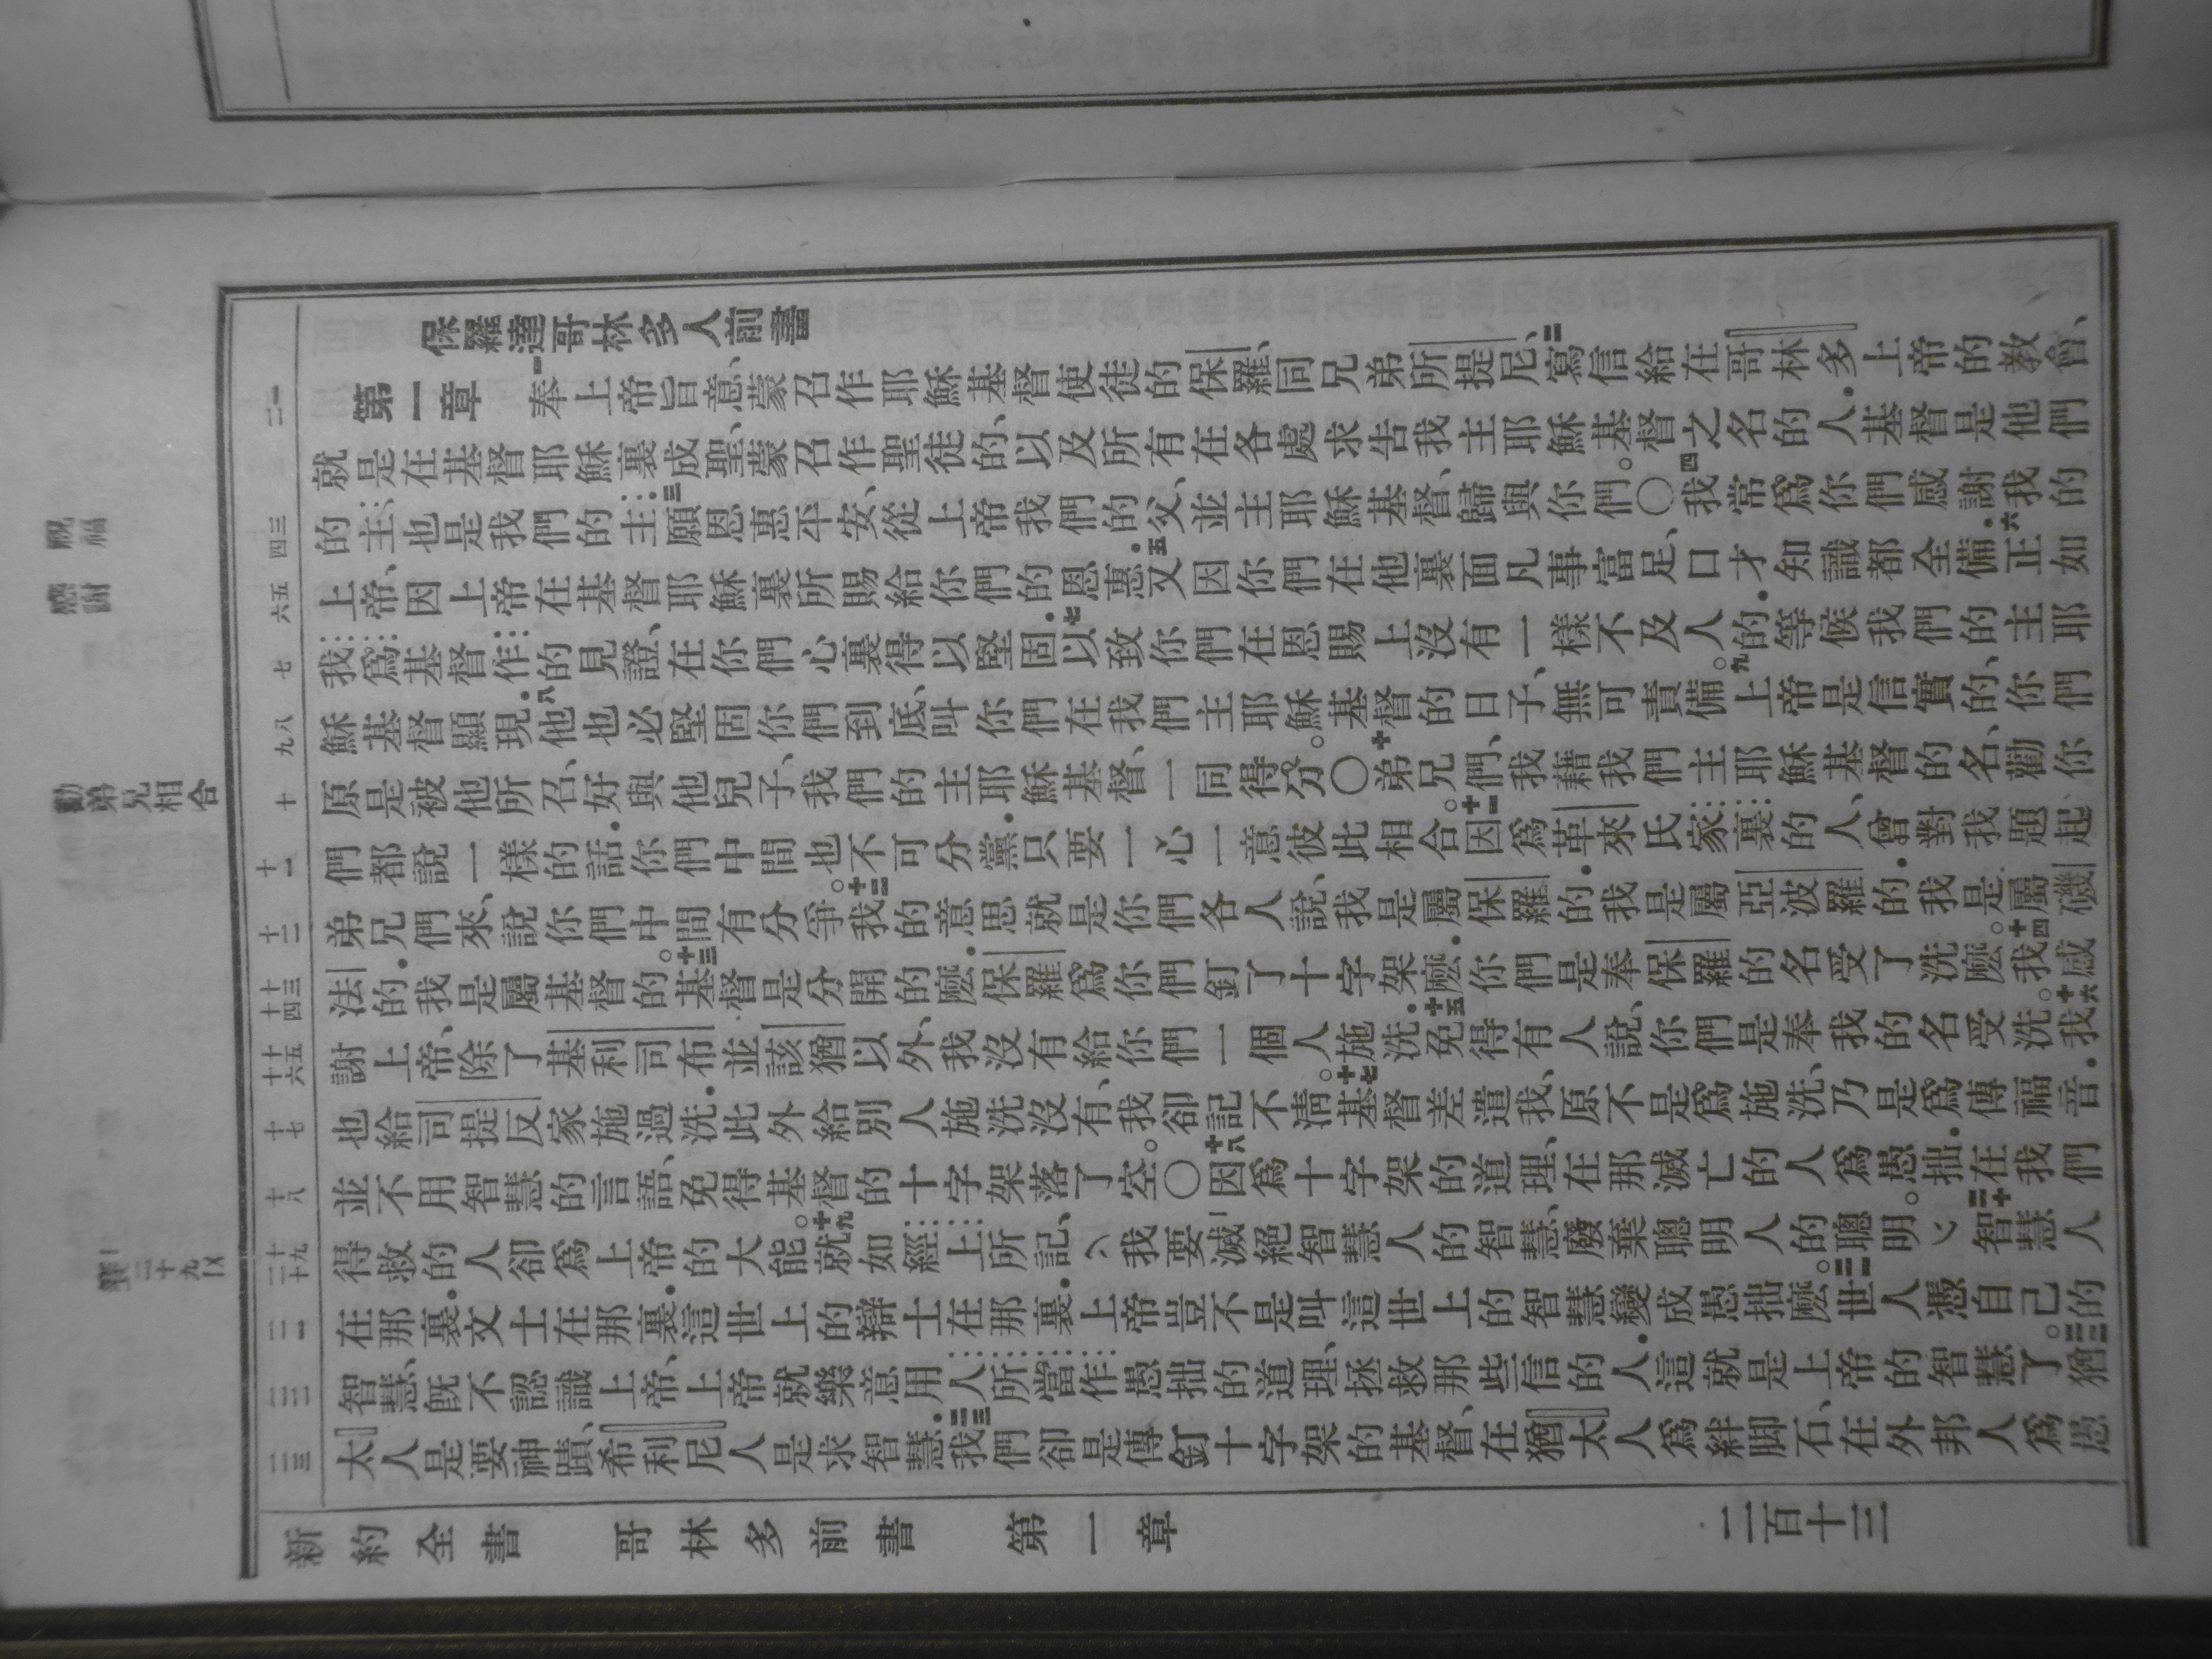 保羅達哥林多人前書
第一章 一奉上帝旨意、蒙召作耶穌基督使徒的保羅、同兄弟所提尼、二寫信給在哥林多上帝的教會、
就是在基督耶穌裏成聖、蒙召作聖徒的、以及所有在各處求告我主耶穌基督之名的人．基督是他們
的主、也是我們的主．三願恩惠平安、從上帝我們的父、並主耶穌基督、歸與你們。〇四我常爲你們感謝我的
上帝、因上帝在基督耶穌裏所賜給你們的恩惠．五又因你們在他裏面凡事富足、口才知識都全備．六正如
我爲基督作的見證、在你們心裏得以堅固．七以致你們在恩賜上沒有一樣不及人的．等候我們的主耶
穌基督顯現．八他也必堅固你們到底、叫你們在我們主耶穌基督的日子、無可責備。九上帝是信實的、你們
原是被他所召、好與他兒子、我們的主耶穌基督、一同得分。〇十弟兄們、我藉我們主耶穌基督的名、勸你
們都說一樣的話．你們中間也不可分黨．只要一心一意彼此相合。十一因爲革來氏家裏的人、曾對我題起
弟兄們來、說你們中間有分爭。十二我的意思就是你們各人說、我是屬保羅的．我是屬亞波羅的．我是屬磯
法的．我是屬基督的。十三基督是分開的麽．保羅爲你們釘了十字架麽．你們是奉保羅的名受了洗麽。十四我感
謝上帝、除了基利司布並該猶以外、我沒有給你們一個人施洗．十五免得有人說、你們是奉我的名受洗。十六我
也給司提反家施過洗．此外給別人施洗沒有、我卻記不清。十七基督差遣我、原不是爲施洗、乃是爲傳福音．
並不用智慧的言語、免得基督的十字架落了空。〇十八因爲十字架的道理、在那滅亡的人爲愚拙．在我們
得救的人卻爲上帝的大能。十九就如經上所記、我要滅絕智慧人的智慧、廢棄聰明人的聰明。二十智慧人
在那裏．文士在那裏．這世上的辯士在那裏．上帝豈不是叫這世上的智慧變成愚拙麽。二一世人憑自己的
智慧、旣不認識上帝、上帝就樂意用人所當作愚拙的道理、拯救那些信的人．這就是上帝的智慧了。二二猶
太人是要神蹟、希利尼人是求智慧．二三我們卻是傳釘十字架的基督、在猶太人爲絆脚石、在外邦人爲愚
一二
三四
五六
七
八九
十
十一
十二
十三十四
十五十六
十七
十八
十九二十
二一
二二
二三
祝福
感謝
勸弟兄相合
新約全書 哥林多前書 第一章 二百十三